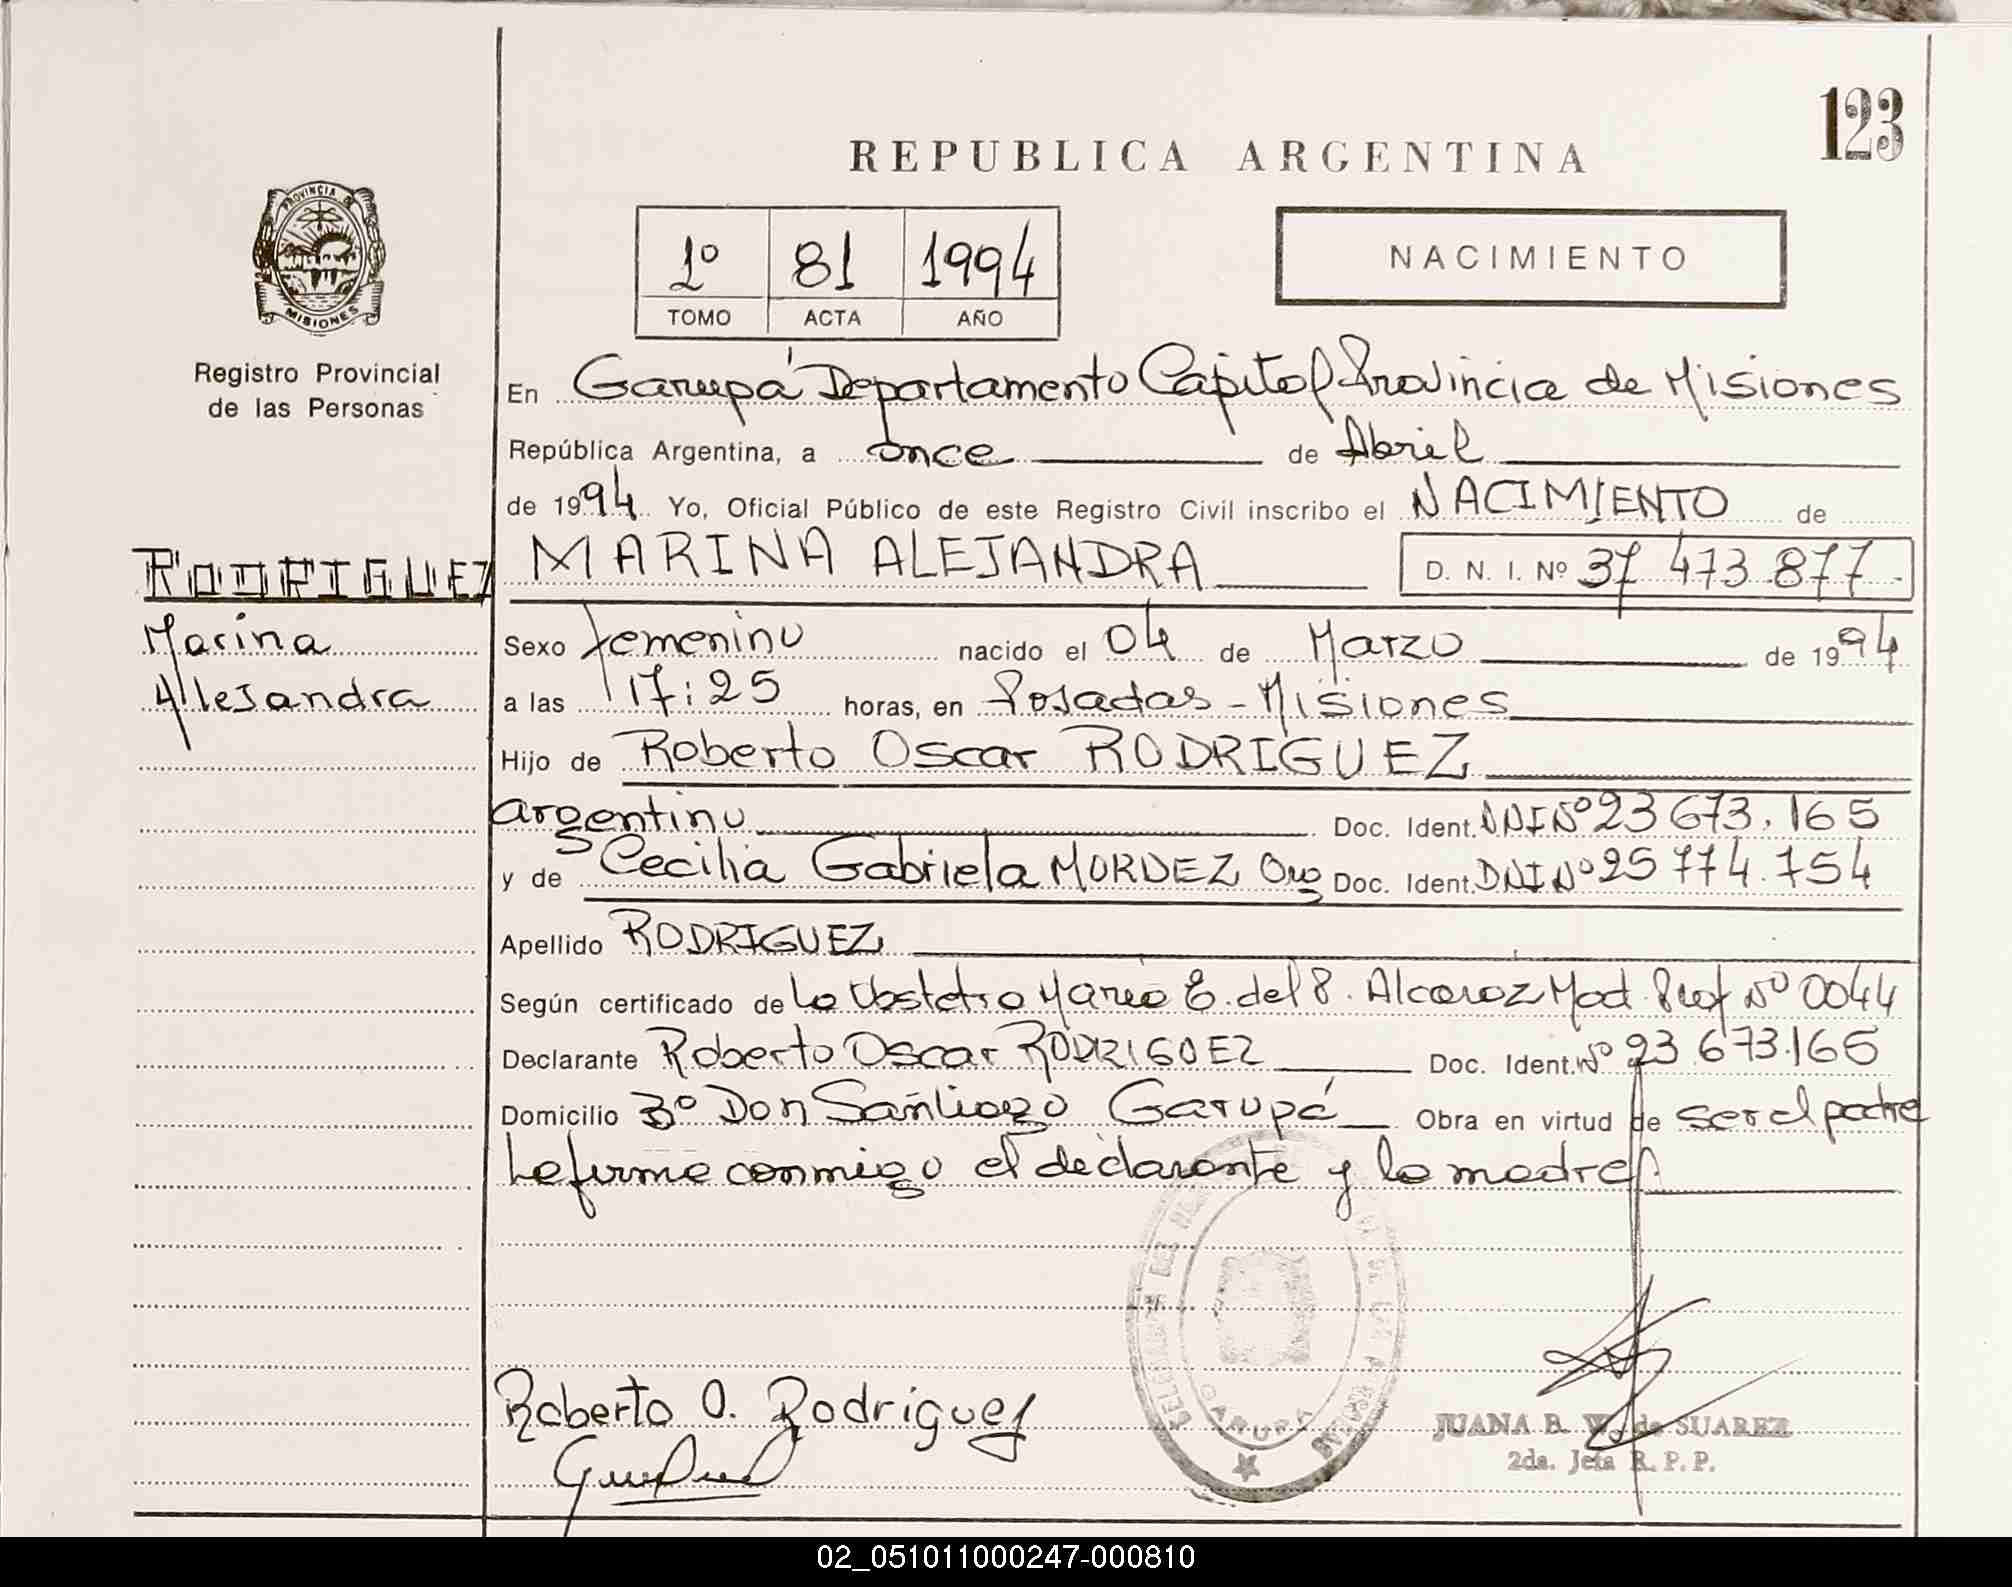 123
REPUBLICA ARGENTINA
PROVINCIA DE
MISIONES
Registro Provincial
de las Personas
1º 81 1994
TOMO ACTA AÑO
NACIMIENTO
En Garupá Departamento Capital Provincia de Misiones
República Argentina, a once de Abril
de 1994 Yo, Oficial Público de este Registro Civil inscribo el NACIMIENTO de
RODRIGUEZ
Marina
Alejandra
MARINA ALEJANDRA D. N. I. Nº 37 473 877
Sexo femenino nacido el 04 de Marzo de 1994
a las 17:25 horas, en Posadas - Misiones
Hijo de Roberto Oscar RODRIGUEZ
argentino Doc. Ident. DNI Nº 23 673.165
y de Cecilia Gabriela Doc. Ident. DNI Nº 25 774.754
Apellido RODRIGUEZ
Según certificado de La Obstetra Maria E. del P. Alcaraz Mat. Prof Nº 0044
Declarante Roberto Oscar RODRIGUEZ Doc. Ident. Nº 23 673.165
Domicilio Bº Don Santiago Garupá Obra en virtud de ser el padre
La firma conmigo el declarante y la madre
Roberto O. Rodriguez
GARUPA
JUANA B. W. de SUAREZ
2da. Jefa R. P. P.
02_051011000247-000810